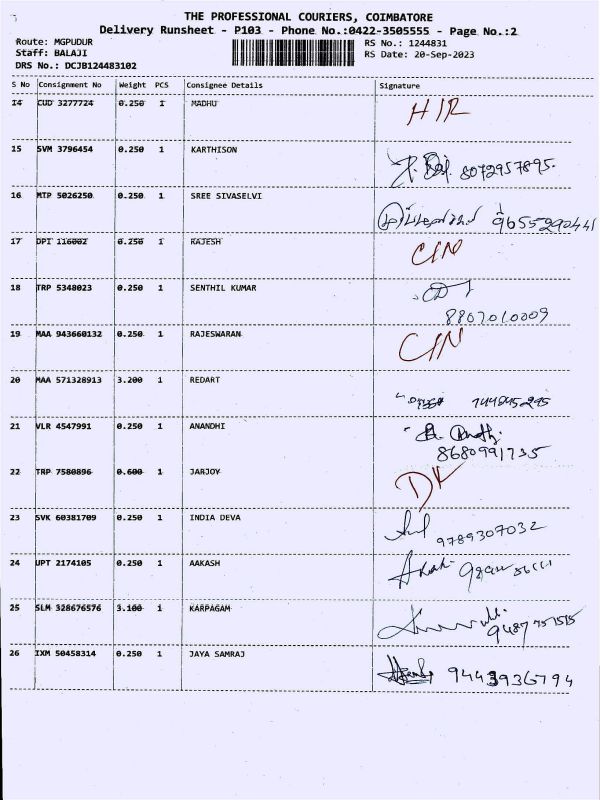 THE PROFESSIONAL COURIERS, COIMBATORE
Delivery Runsheet - P103 - Phone No.:0422-3505555 - Page No.:2
Route: MGPUDUR RS No.: 1244831
Staff: BALAJI RS Date: 20-Sep-2023
DRS No.: DCJB124483102
S No Consignment No Weight PCS Consignee Details Signature
14 CUD 3277724 0.250 1 MADHU
15 SVM 3796454 0.250 1 KARTHISON 8072957895.
16 MTP 5026250 0.250 1 SREE SIVASELVI 9655290441
17 DPI 116002 0.250 1 RAJESH CIN
18 TRP 5348023 0.250 1 SENTHIL KUMAR
8807010009
19 MAA 943660132 0.250 1 RAJESWARAN CIN
20 MAA 571328913 3.200 1 REDART
21 VLR 4547991 0.250 1 ANANDHI
8680991735
22 TRP 7580896 0.600 1 JARJOY DK
23 SVK 60381709 0.250 1 INDIA DEVA
9789307032
24 UPT 2174105 0.250 1 AAKASH
25 SLM 328676576 3.100 1 KARPAGAM
26 IXM 50458314 0.250 1 JAYA SAMRAJ 9443936794